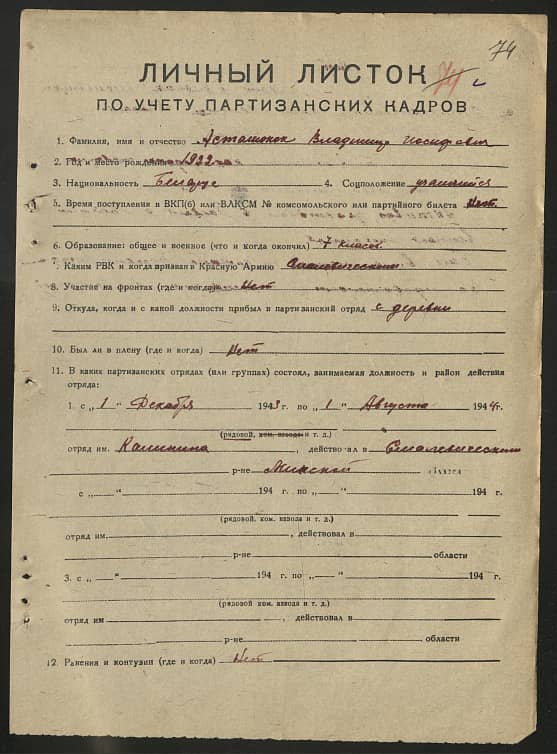 74
74
ЛИЧНЫЙ ЛИСТОК
ПО УЧЕТУ ПАРТИЗАНСКИХ КАДРОВ
1. Фамилия, имя и отчество Асташонок Владимир Иосифович
2. Год и место рождения 1922
3. Национальность Беларус 4. Соцположение учащийся
5. Время поступления в ВКП(б) или ВЛКСМ № комсомольского или партийного билета Нет
6. Образование: общее и военное (что и когда окончил) 7 классов
7. Каким РВК и когда призван в Красную Армию Смолевическим
8. Участие на фронтах (где и когда) Нет
9. Откуда, когда и с какой должности прибыл в партизанский отряд с деревни
10. Был ли в плену (где и когда) Нет
11. В каких партизанских отрядах (или группах) состоял, занимаемая должность и район действия
отряда:
1. с „1" Декабря 1943 г. по „1" Августа 1944 г.
(рядовой, ком. взвода и т. д.)
отряд им. Калинина, действовал в Смалевическом
р-не Минской области
с „ " 194 г. по „ " 194 г.
(рядовой, ком. взвода и т. д.)
отряд им. , действовал в
р-не области
3. с „ " 194 г. по „ " 194 г.
(рядовой ком. взвода и т. д.)
отряд им , действовал в
р-не области
12. Ранения и контузии (где и когда) Нет